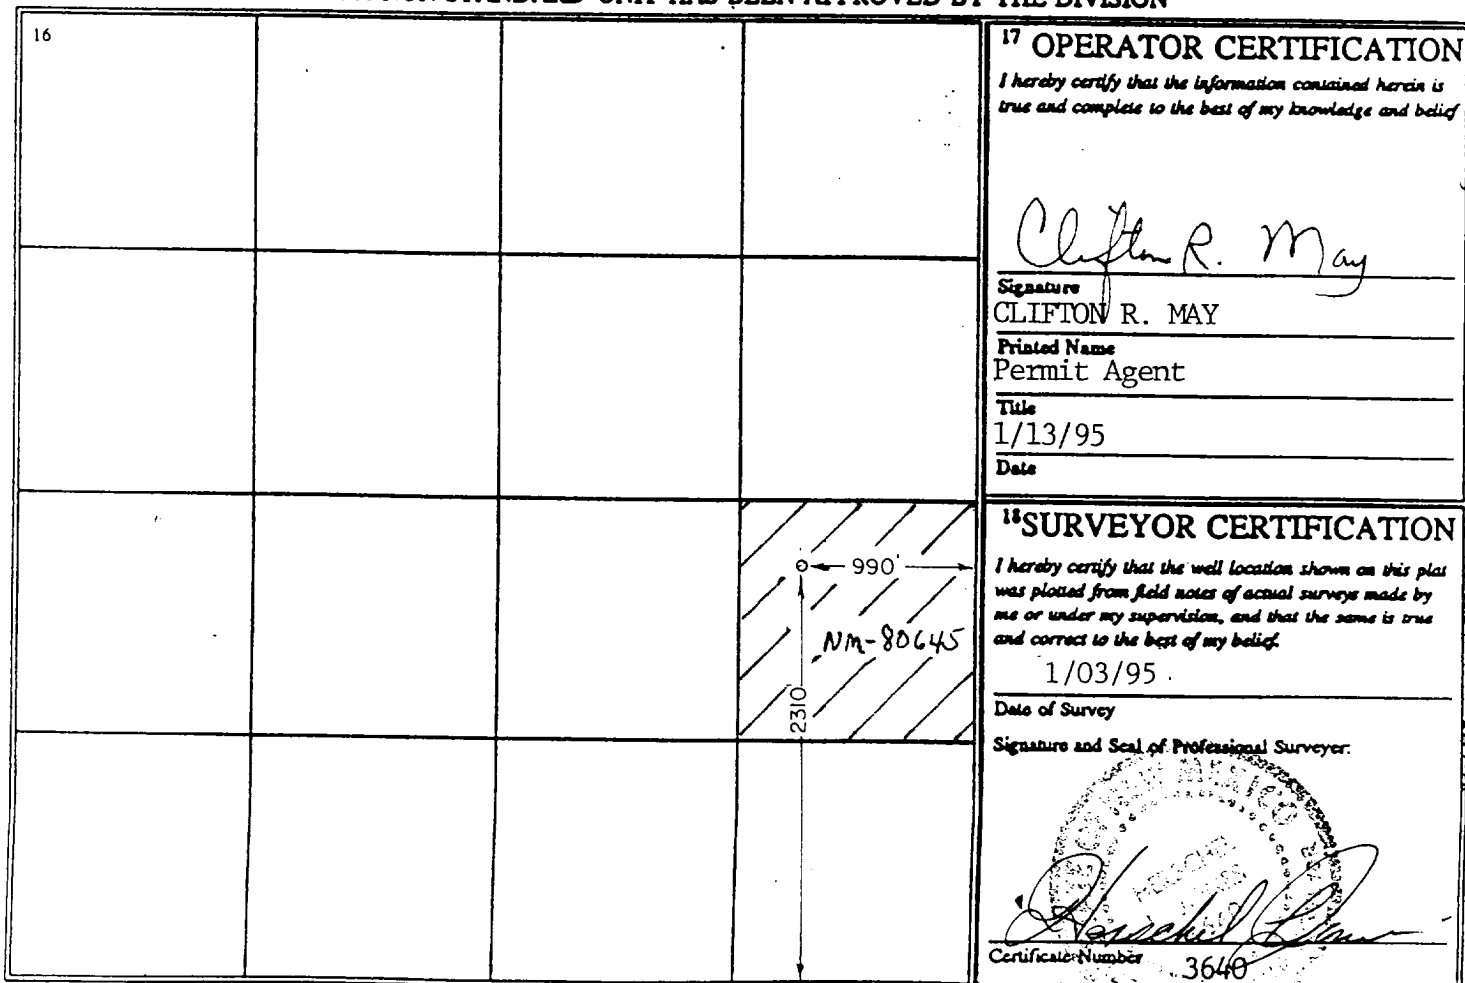 UNIT HAS BEEN APPROVED BY THE DIVISION
16
990'
NM-80645
2310'
17 OPERATOR CERTIFICATION
I hereby certify that the information contained herein is
true and complete to the best of my knowledge and belief
Clifton R. May
Signature
CLIFTON R. MAY
Printed Name
Permit Agent
Title
1/13/95
Date
18 SURVEYOR CERTIFICATION
I hereby certify that the well location shown on this plat
was plotted from field notes of actual surveys made by
me or under my supervision, and that the same is true
and correct to the best of my belief.
1/03/95
Date of Survey
Signature and Seal of Professional Surveyer:
NEW MEXICO
HERSCHEL
Herschel
Certificate Number 3640